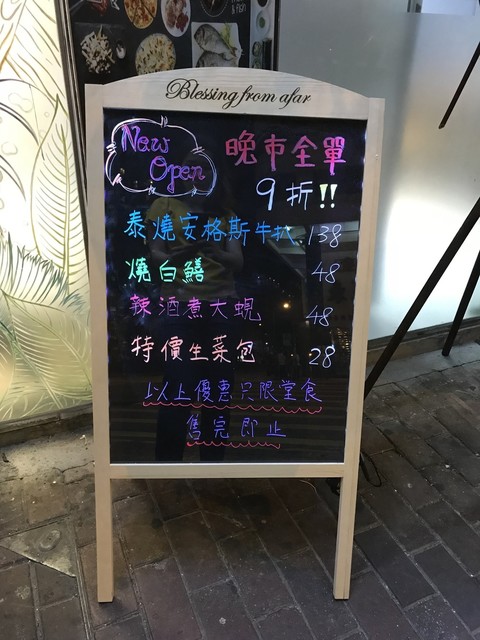 Blessing from afar
New Open
晚市全單
9折!!
泰燒安格斯牛扒 138
燒白鱔 48
辣酒煮大蜆 48
特價生菜包 28
以上優惠只限堂食
售完即止